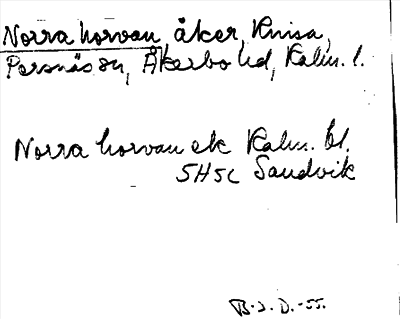 Norra horvan åker, Knisa,
Persnäs sn, Åkerbo hd, Kalm. l.
Norra horvan ek Kalm. bl.
5H5c Sandvik
B. J. D. -55.